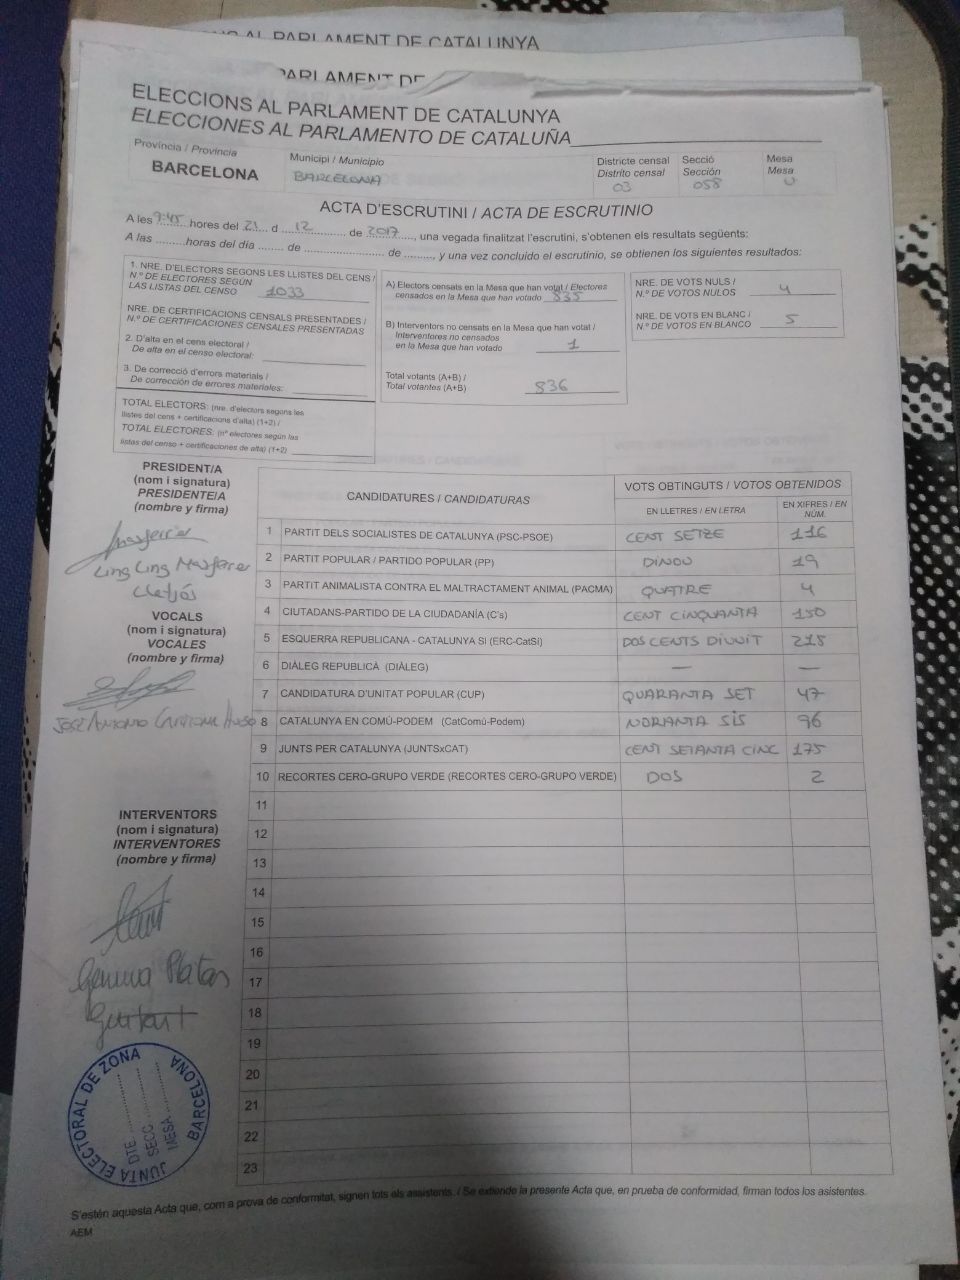 AL PARLAMENT DE CATALUNYA
PARLAMENT DE
ELECCIONS AL PARLAMENT DE CATALUNYA
ELECCIONES AL PARLAMENTO DE CATALUÑA
Província / Provincia
BARCELONA
Municipi / Municipio
BARCELONA
Districte censal
Distrito censal
03
Secció
Sección
058
Mesa
Mesa
U
ACTA D'ESCRUTINI / ACTA DE ESCRUTINIO
A les 9:45 hores del 21 d 12 de 2017, una vegada finalitzat l'escrutini, s'obtenen els resultats següents:
A las ..........horas del día ........ de ........................... de .........., y una vez concluido el escrutinio, se obtienen los siguientes resultados:
1. NRE. D'ELECTORS SEGONS LES LLISTES DEL CENS /
N.º DE ELECTORES SEGÚN
LAS LISTAS DEL CENSO 1033
NRE. DE CERTIFICACIONS CENSALS PRESENTADES /
N.º DE CERTIFICACIONES CENSALES PRESENTADAS
2. D'alta en el cens electoral /
De alta en el censo electoral:
3. De correcció d'errors materials /
De corrección de errores materiales:
TOTAL ELECTORS: (nre. d'electors segons les
llistes del cens + certificacions d'alta) (1+2) /
TOTAL ELECTORES: (nº electores según las
listas del censo + certificaciones de alta) (1+2)
A) Electors censats en la Mesa que han votat / Electores
censados en la Mesa que han votado 835
B) Interventors no censats en la Mesa que han votat /
Interventores no censados
en la Mesa que han votado 1
Total votants (A+B) /
Total votantes (A+B) 836
NRE. DE VOTS NULS /
N.º DE VOTOS NULOS 4
NRE. DE VOTS EN BLANC /
N.º DE VOTOS EN BLANCO 5
PRESIDENT/A
(nom i signatura)
PRESIDENTE/A
(nombre y firma)
Ling Ling Masferrer
VOCALS
(nom i signatura)
VOCALES
(nombre y firma)
JOSE ANTONIO
INTERVENTORS
(nom i signatura)
INTERVENTORES
(nombre y firma)
Gemma Platas
CANDIDATURES / CANDIDATURAS
VOTS OBTINGUTS / VOTOS OBTENIDOS
EN LLETRES / EN LETRA
EN XIFRES / EN NÚM.
1 PARTIT DELS SOCIALISTES DE CATALUNYA (PSC-PSOE) CENT SETZE 116
2 PARTIT POPULAR / PARTIDO POPULAR (PP) DINOU 19
3 PARTIT ANIMALISTA CONTRA EL MALTRACTAMENT ANIMAL (PACMA) QUATRE 4
4 CIUTADANS-PARTIDO DE LA CIUDADANÍA (C's) CENT CINQUANTA 150
5 ESQUERRA REPUBLICANA - CATALUNYA SI (ERC-CatSí) DOS CENTS DIVUIT 218
6 DIÀLEG REPUBLICÀ (DIÀLEG) — —
7 CANDIDATURA D'UNITAT POPULAR (CUP) QUARANTA SET 47
8 CATALUNYA EN COMÚ-PODEM (CatComú-Podem) NORANTA SIS 96
9 JUNTS PER CATALUNYA (JUNTSxCAT) CENT SETANTA CINC 175
10 RECORTES CERO-GRUPO VERDE (RECORTES CERO-GRUPO VERDE) DOS 2
11
12
13
14
15
16
17
18
19
20
21
22
23
JUNTA ELECTORAL DE ZONA
BARCELONA
DTE
SECC
MESA
S'estén aquesta Acta que, com a prova de conformitat, signen tots els assistents. / Se extiende la presente Acta que, en prueba de conformidad, firman todos los asistentes.
AEM